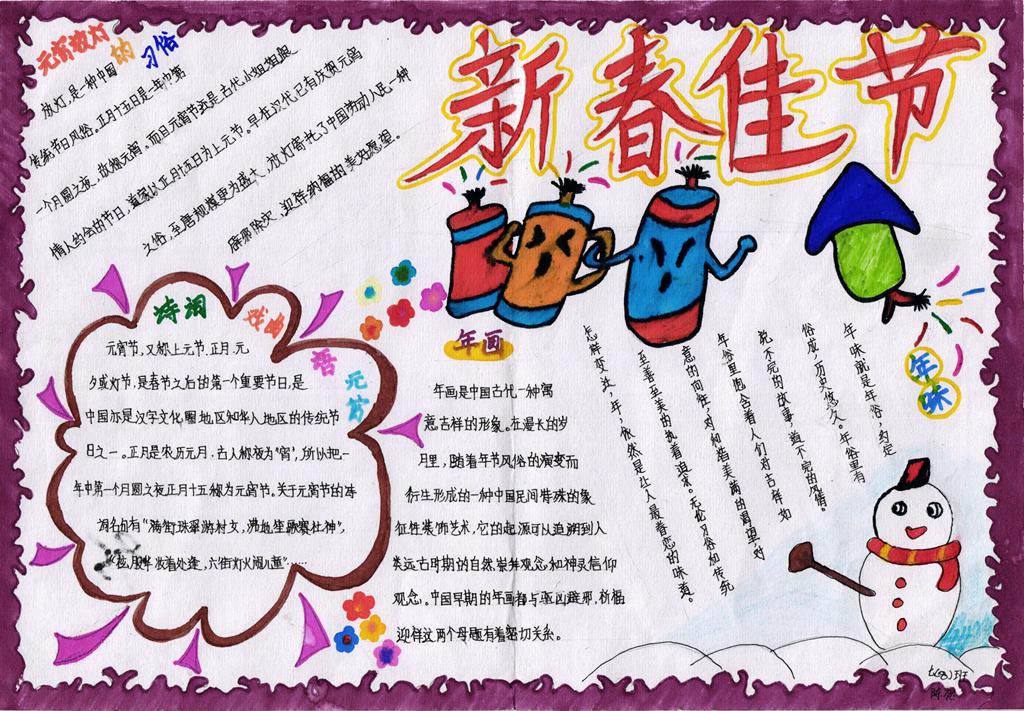 新春佳节
元宵放灯的习俗
放灯,是一种中国
传统节日风俗。正月十五日是一年中第
一个月圆之夜,故称元宵。而且元宵节还是古代小姐姐跟
情人约会的节日,道家以正月十五日为上元节。早在汉代已有庆贺元宵
之俗,至唐规模更为盛大,放灯寄托了中国劳动人民一种
辟邪除灾,迎祥纳福的美好愿望。
诗词戏曲语元宵
元宵节,又称上元节.正月.元
夕或灯节,是春节之后的第一个重要节日,是
中国亦是汉字文化圈地区和华人地区的传统节
日之一。正月是农历元月,古人称夜为"宵",所以把一
年中第一个月圆之夜正月十五称为元宵节。关于元宵节的诗
词名句有"满街珠翠游村女,沸地笙歌赛社神",
收着处逢,六街灯火闹儿童"……
年画
年画是中国古代一种寓
意吉祥的形象。在漫长的岁
月里,随着年节风俗的演变而
衍生形成的一种中国民间特殊的象
征性装饰艺术,它的起源可以追溯到人
类远古时期的自然崇拜观念和神灵信仰
观念。中国早期的年画都与驱凶避邪,祈福
迎祥这两个母题有着密切关系。
年味
年味就是年俗,约定
俗成,历史悠久。年俗里有
说不完的故事,道不完的风情。
年俗里饱含着人们对吉祥如
意的向往,对和谐美满的渴望,对
至善至美的执着追求。无论习俗和传统
怎样变迁,年,依然是让人最眷恋的味道。
班